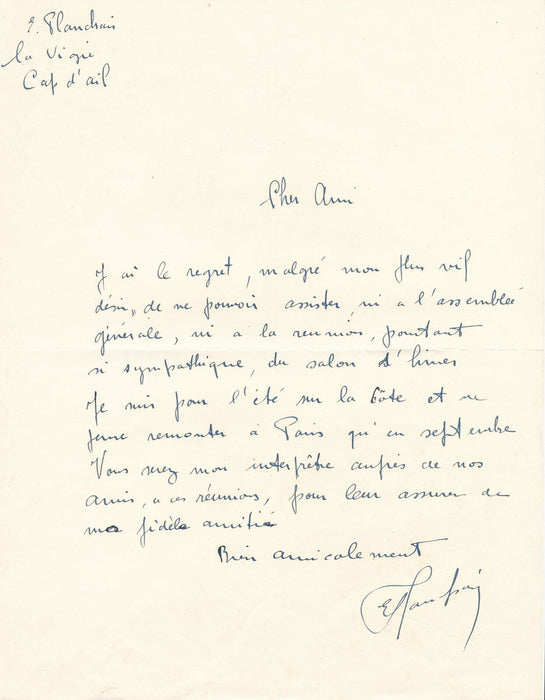 E. Planchais
la Vigie
Cap d'ail
Cher Ami
J'ai le regret, malgré mon plus vif
désir, de ne pouvoir assister, ni a l'assemblée
générale, ni a la reunion, pourtant
si sympathique, du salon d'hiver
Je suis pour l'été sur la Côte et ne
pense remonter à Paris qu'en septembre
Vous serez mon interprête auprès de nos
amis, a ces réunions, pour leur assurer de
ma fidèle amitié
Bien amicalement